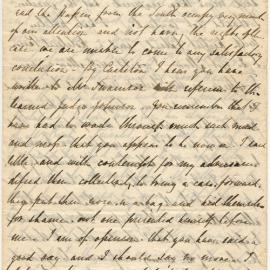 and the papers from the South occupy very much
of our attention and not having the rights of the
case we are unable to come to any satisfactory
conclusion - By Carleton I hear you have
written to Mr Swainson in reference to the
learned Judge Johnston you remember that I
have had to wade through much such mud
and mire that you appear to be now in I said
little and with contempt for my adversaries
defied them collectively to bring a case forward
they put them in a bag and
for shame not one presented himself before
me I am of opinion that you have said a
good say and I should say no more I